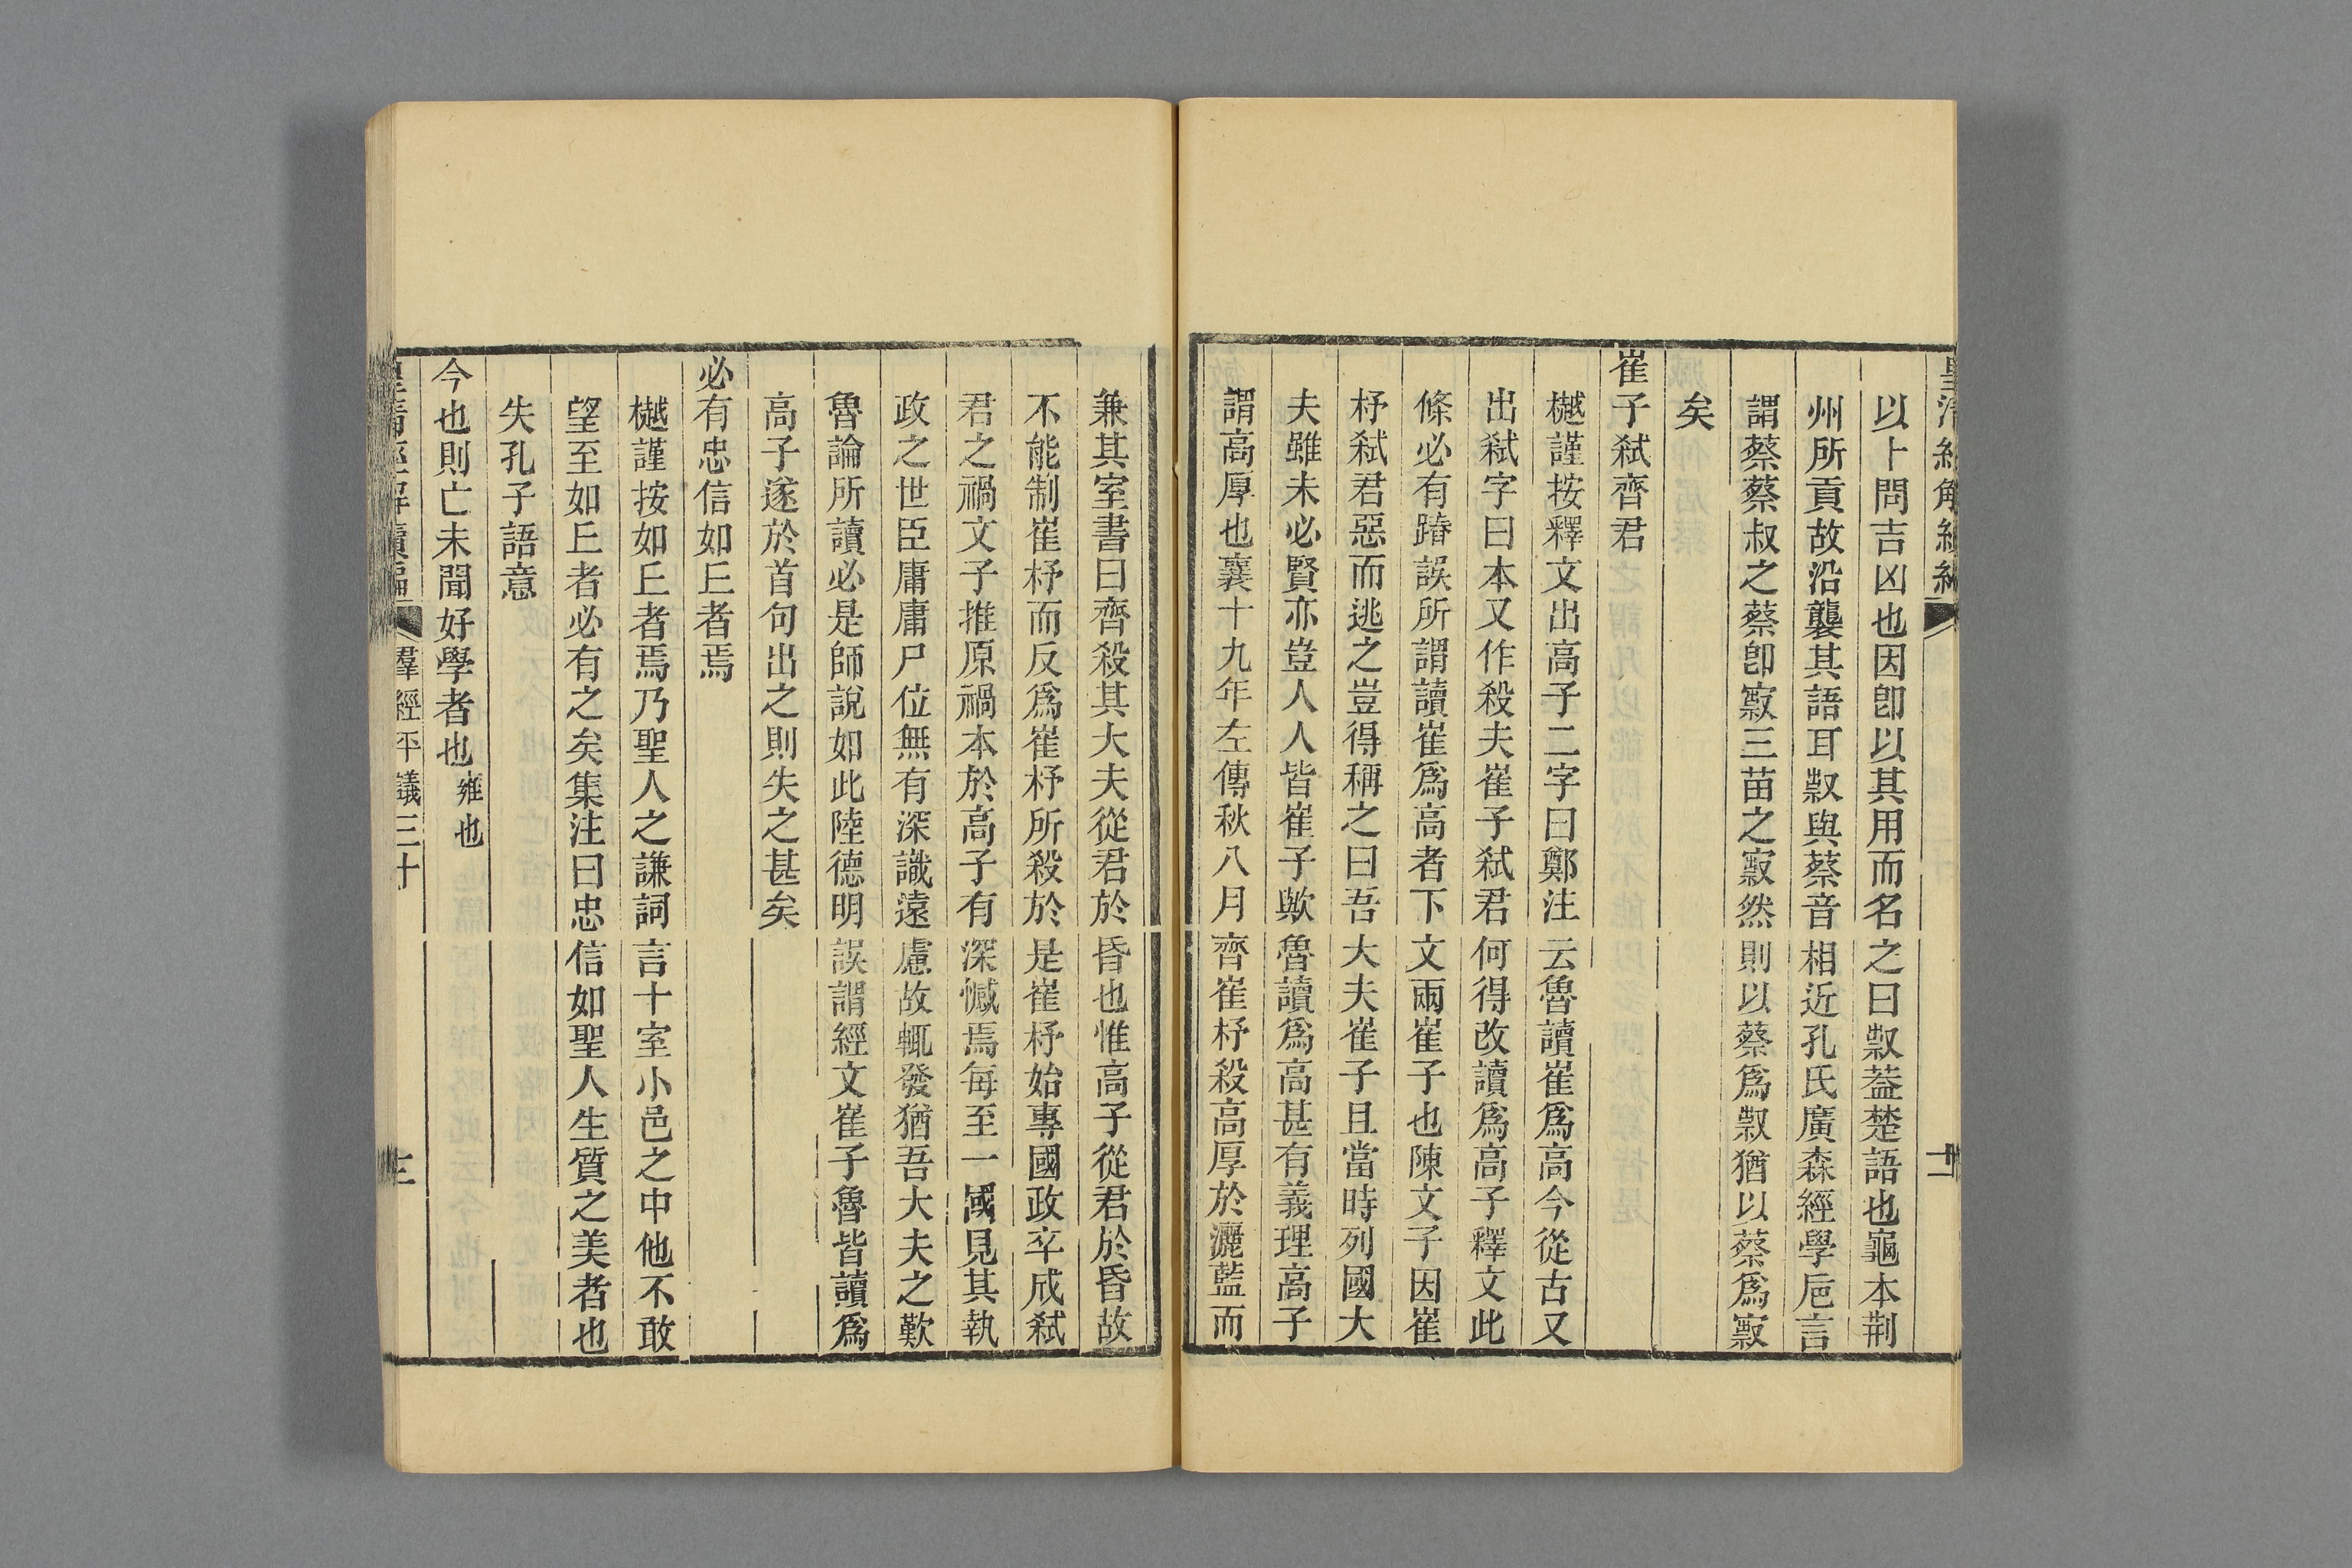 以卜問吉凶也因卽以其用而名之曰㲽葢楚語也龜本荆
州所貢故沿襲其語耳㲽與蔡音相近孔氏廣森經學卮言
謂蔡蔡叔之蔡卽竅三苗之竅然則以蔡爲㲽猶以蔡爲竅
矣
崔子弑齊君
樾謹按釋文出高子二字曰鄭注云魯讀崔爲高今從古又
出弑字曰本又作殺夫崔子弑君何得改讀爲高子釋文此
條必有蹖誤所謂讀崔爲高者下文兩崔子也陳文子因崔
杼弑君惡而逃之豈得稱之曰吾大夫崔子且當時列國大
夫雖未必賢亦豈人人皆崔子歟魯讀爲高甚有義理高子
謂高厚也襄十九年左傳秋八月齊崔杼殺高厚於灑藍而
兼其室書曰齊殺其大夫從君於昏也惟高子從君於昏故
不能制崔杼而反爲崔杼所殺於是崔杼始專國政卒成弑
君之禍文子推原禍本於高子有深憾焉每至一國見其執
政之世臣庸庸尸位無有深識遠慮故輒發猶吾大夫之歎
魯論所讀必是師說如此陸德明誤謂經文崔子魯皆讀爲
高子遂於首句出之則失之甚矣
必有忠信如丘者焉
樾謹按如丘者焉乃聖人之謙詞言十室小邑之中他不敢
望至如丘者必有之矣集注曰忠信如聖人生質之美者也
失孔子語意
今也則亡未聞好學者也雍也
皇清經解續編 羣經平議三十